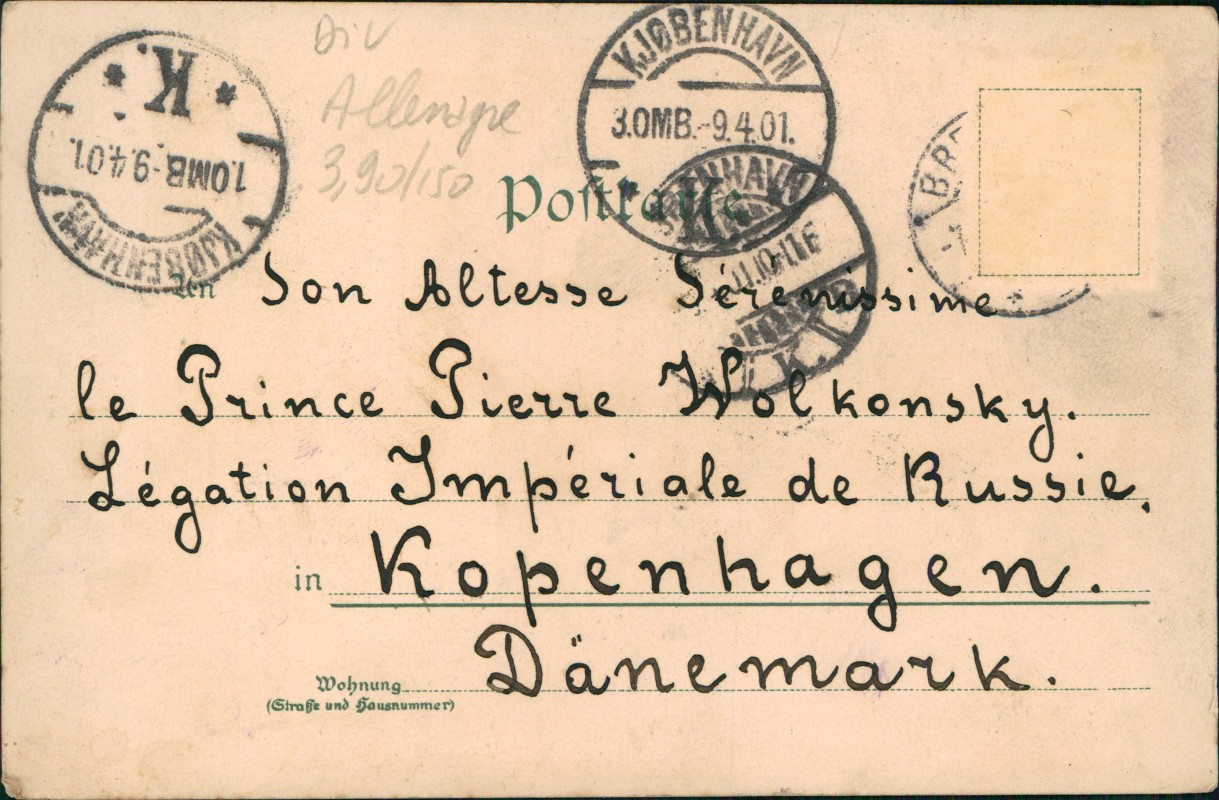 Div
Allemagne
3,90/150
K.
1.OMB.-9.4.01.
KJØBENHAVN
KJØBENHAVN
3.OMB.-9.4.01.
K
Postkarte
An Son Altesse Sérénissime
le Prince Pierre Wolkonsky.
Légation Impériale de Russie.
in Kopenhagen.
Dänemark.
Wohnung
(Straße und Hausnummer)